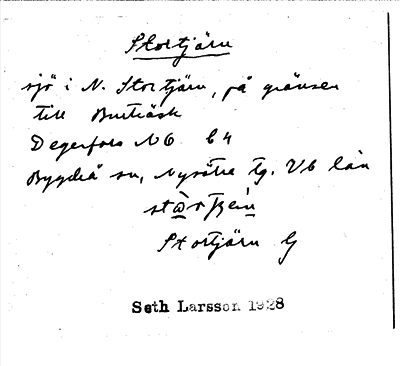 Stortjärn
sjö i N. Stortjärn, på gränsen
till Burträsk
Degerfors NO b4
Bygdeå sn, Nysätra tg. Vb län
Stortjärn G
Seth Larsson 1928